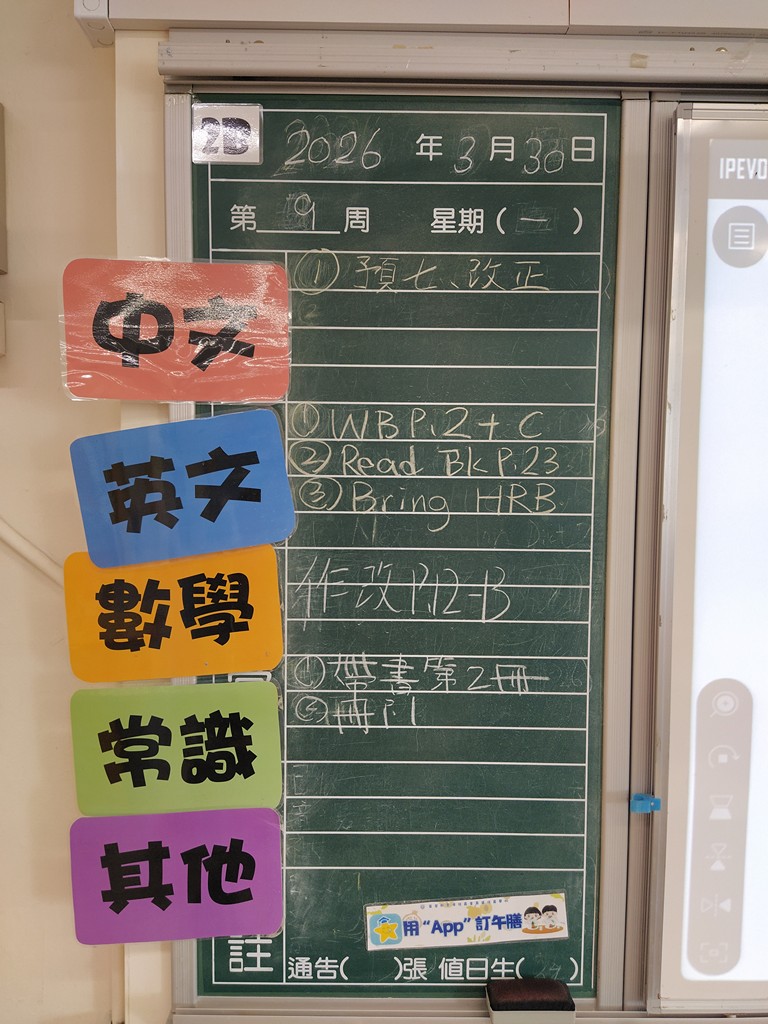 2D 2026 年 3 月 30 日
第 9 周 星期(一)
中文
① 預七、改正
英文
① WB P.2 + C
② Read Bk P.23
③ Bring HRB
數學
作改 P.12-13
常識
① 帶書第2冊
② 冊
其他
用“App”訂午膳
註
通告( )張 值日生( )
IPEVO